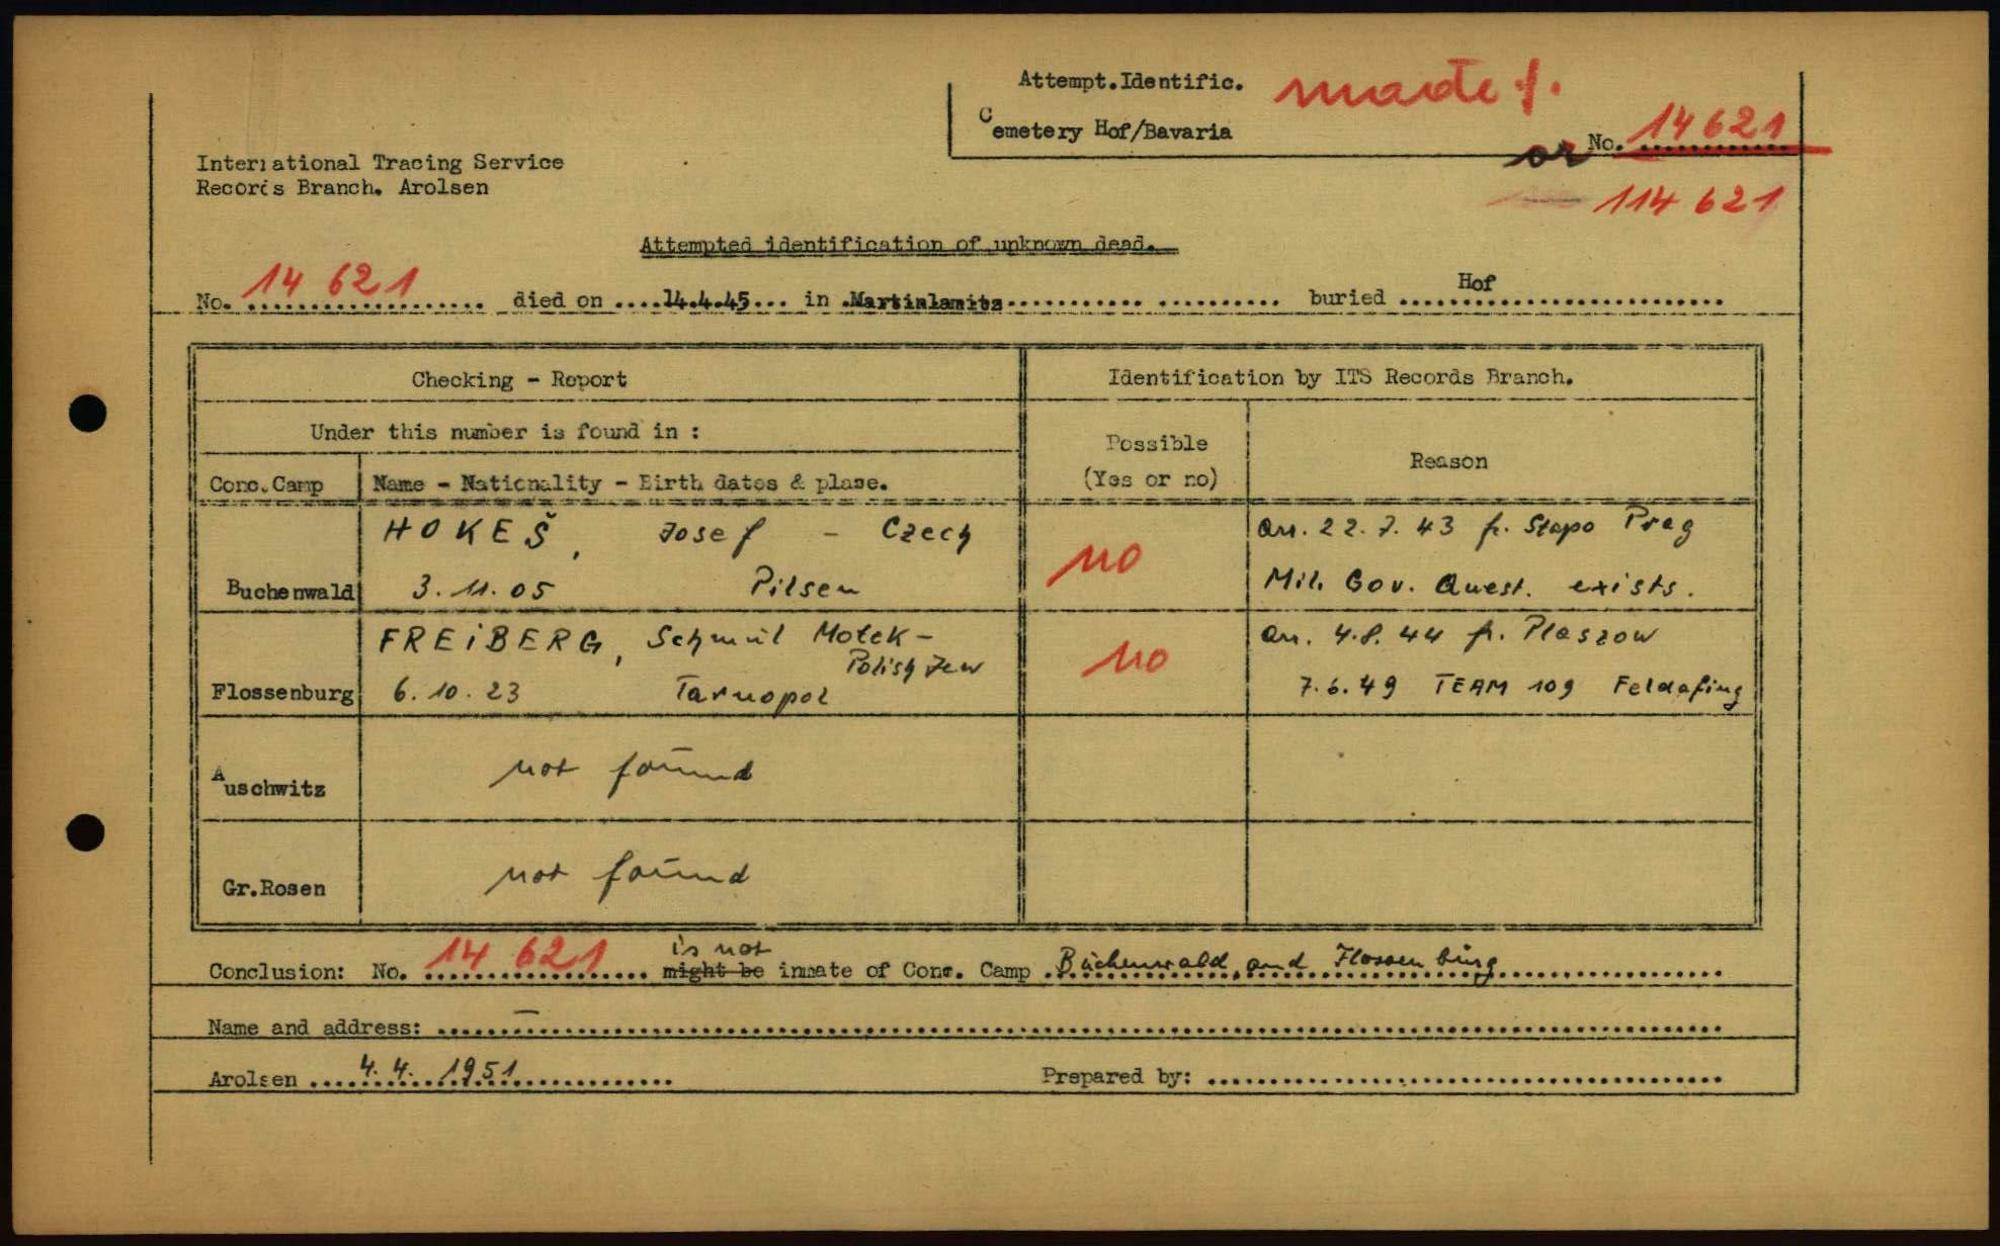 Attempt.Identific. made f.
Cemetery Hof/Bavaria
No. 14 621
or 114 621
International Tracing Service
Records Branch. Arolsen
Attempted identification of unknown dead.
No. 14 621 died on ....14.4.45... in .Martinlamitz............ ........... buried ..... Hof .....
Checking - Report Identification by ITS Records Branch.
Under this number is found in :
Possible
(Yes or no)
Reason
Conc.Camp Name - Nationality - Birth dates & place.
HOKEŠ, Josef - Czech no Arr. 22.7.43 fr. Stapo Prag
Buchenwald 3.11.05 Pilsen Mil. Gov. Quest. exists.
FREiBERG, Schmul Motek - no Arr. 4.8.44 fr. Plaszow
Polish Jew
Flossenburg 6.10.23 Tarnopol 7.6.49 TEAM 109 Feldafing
Auschwitz not found
Gr.Rosen not found
is not
Conclusion: No. 14 621 might be inmate of Conc. Camp Buchenwald and Flossenburg
Name and address: —
Arolsen 4.4.1951 Prepared by: